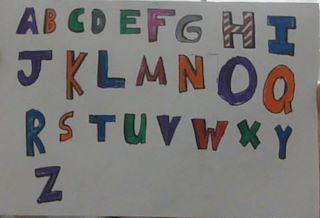 ABCDEFGHI
JKLMNOQ
RSTUVWXY
Z